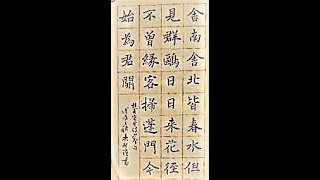 舍南舍北皆春水但
見群鷗日日來花徑
不曾緣客掃蓬門今
始為君開